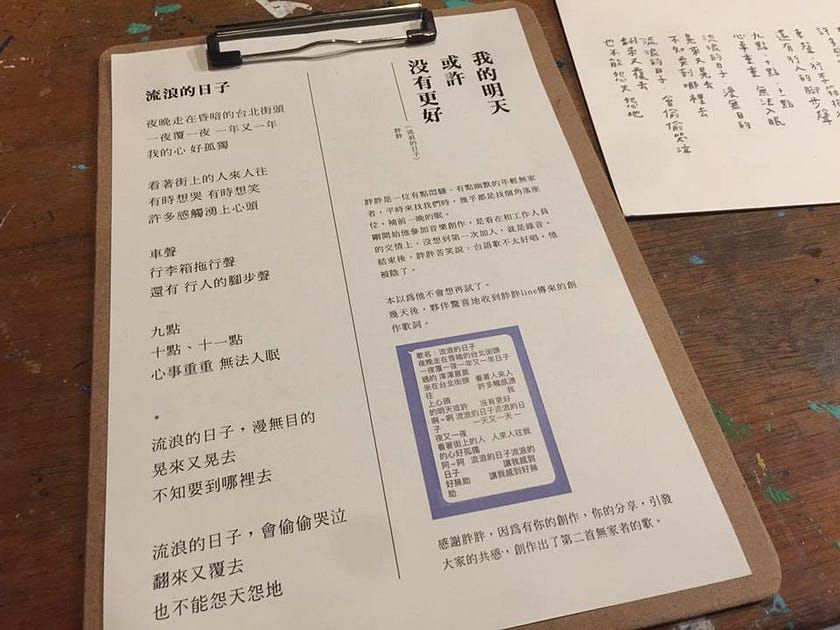 流浪的日子
夜晚走在昏暗的台北街頭
一夜覆一夜 一年又一年
我的心 好孤獨
看著街上的人來人往
有時想哭 有時想笑
許多感觸湧上心頭
車聲
行李箱拖行聲
還有 行人的腳步聲
九點
十點、十一點
心事重重 無法入眠
*
流浪的日子，漫無目的
晃來又晃去
不知要到哪裡去
流浪的日子，會偷偷哭泣
翻來又覆去
也不能怨天怨地
我的明天
或許
没有更好
——《流浪的日子》
胖胖
胖胖是一位有點悶騷、有點幽默的年輕無家
者，平時來找我們時，幾乎都是找個角落座
位，補前一晚的眠。
剛開始他參加音樂創作，是看在和工作人員
的交情上，沒想到第一次加入，就是錄音。
結束後，胖胖苦笑說：台語歌不太好唱，他
被陰了。
本以為他不會想再試了。
幾天後，夥伴驚喜地收到胖胖line傳來的創
作歌詞。
歌名：流浪的日子
夜晚走在昏暗的台北街頭
一夜覆一夜一年又一年日子
過的 渾渾噩噩
坐在台北街頭 看著人來人
往 許多觸感湧
上心頭 我
的明天或許 没有更好
啊~啊 流浪的日子流浪的日
子 一天又一天 一
夜又一夜
看著街上的人 人來人往我
的心好孤獨
阿~阿 流浪的日子流浪的
日子 讓我感到
好無助 讓我感到好無
助
感謝胖胖，因為有你的創作，你的分享，引發
大家的共感，創作出了第二首無家者的歌。
車聲 行李箱
還有行人的腳步聲
九點、十點、十一點
心事重重 無法入眠
流浪的日子 漫無目的
晃來又晃去
不知要到哪裡去
流浪的日子 會偷偷哭泣
翻來又覆去
也不能怨天怨地